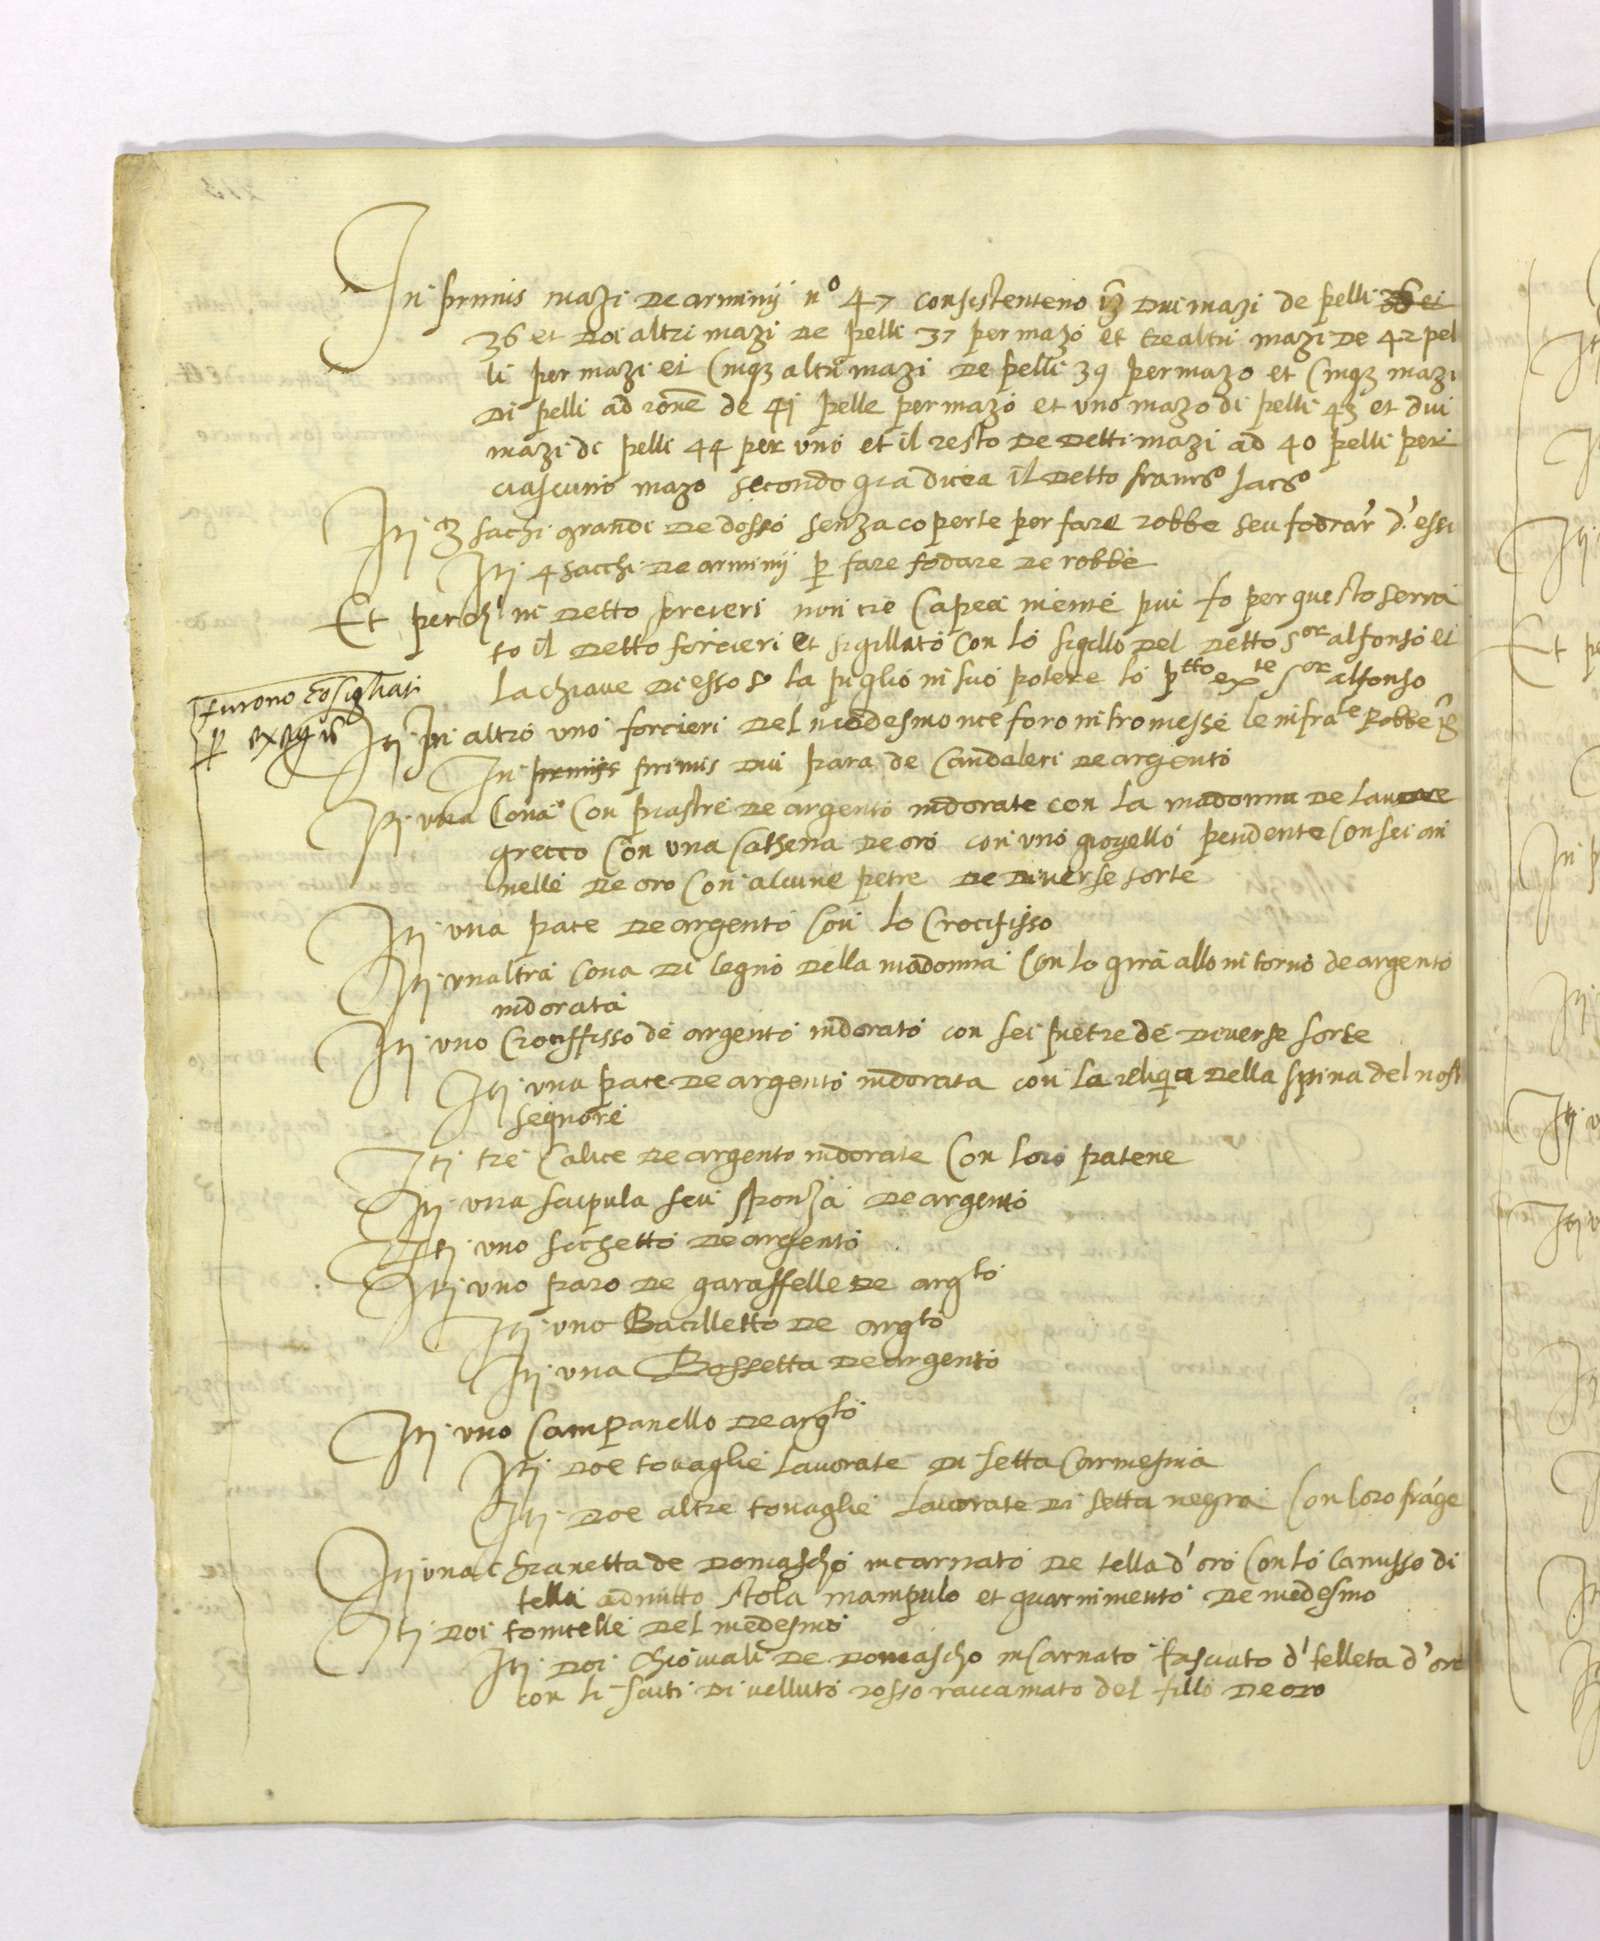 In primis mazi de arminij n° 47 consistenteno iz dui mazi de pelli 36 et
36 et doi altri mazi de pelli 37 per mazo et tre altri mazi de 42 pel
li per mazi et Cinq3 altri mazi de pelli 39 per mazo et Cinq3 mazi
di pelli ad rone de 41 pelle per mazo et uno mazo di pelli 43 et dui
mazi di pelli 44 per uno et il resto de detti mazi ad 40 pelli per
ciascuno mazo secondo q̄a dicea il detto
Itj 3 sachi grandi de dosso senza coperte per fare robbe seu fodrar' d' essi
Itj 4 sacchi de arminij p fare fodare de robbe
Et perch' in detto forcieri non cie Capea niente piu fo per questo serra
to il detto forcieri et sigillato con lo sigillo del detto S.or alfonso et
la chiave di esso la piglio in suo potere lo p.tto ex.te S.or alfonso
furono cosigliati
p exeq
Itj In altro uno forcieri del medesmo nce foro intromesse le infra.te Robbe
In primis dui para de Candeleri de argento
Itj una Cona Con piastre de argento indorate con la madonna de lavore
grecco Con una Cathena de oro con uno gioyello pendente Con sei ani
nelle de oro Con alcune petre de diverse sorte
Itj una pace de argento Con lo Crocifisso
Itj unaltra cona di legno della madonna Con lo giro allo intorno de argento
indorata
Itj uno Crociffisso de argento indorato con sei pietre de diverse sorte
Itj una pace de argento indorata con la reliq.a della spina del nost
segnore
Itj tre Calice de argento indorate Con loro patene
Itj una scipula seu sponza de argento
Itj uno sichetto de argento
Itj uno paro de garaffelle de arg.to
Itj uno Bacilletto de arg.to
Itj una Bossetta de argento
Itj uno Campanello de arg.to
Itj doe tovaglie lavorate di setta Carmesina
Itj doe altre tovaglie lavorate di setta negra Con loro frãge
Itj una chianetta de domascho incarnato de tella d' oro Con lo Camisso di
tella admitto stola mampulo et guarnimento de medesmo
Itj doi tonicelle del medesmo
Itj doi chioviali de domascho incarnato fasciato d' telleta d' oro
con li scuti di velluto rosso raccamato del fillo de oro